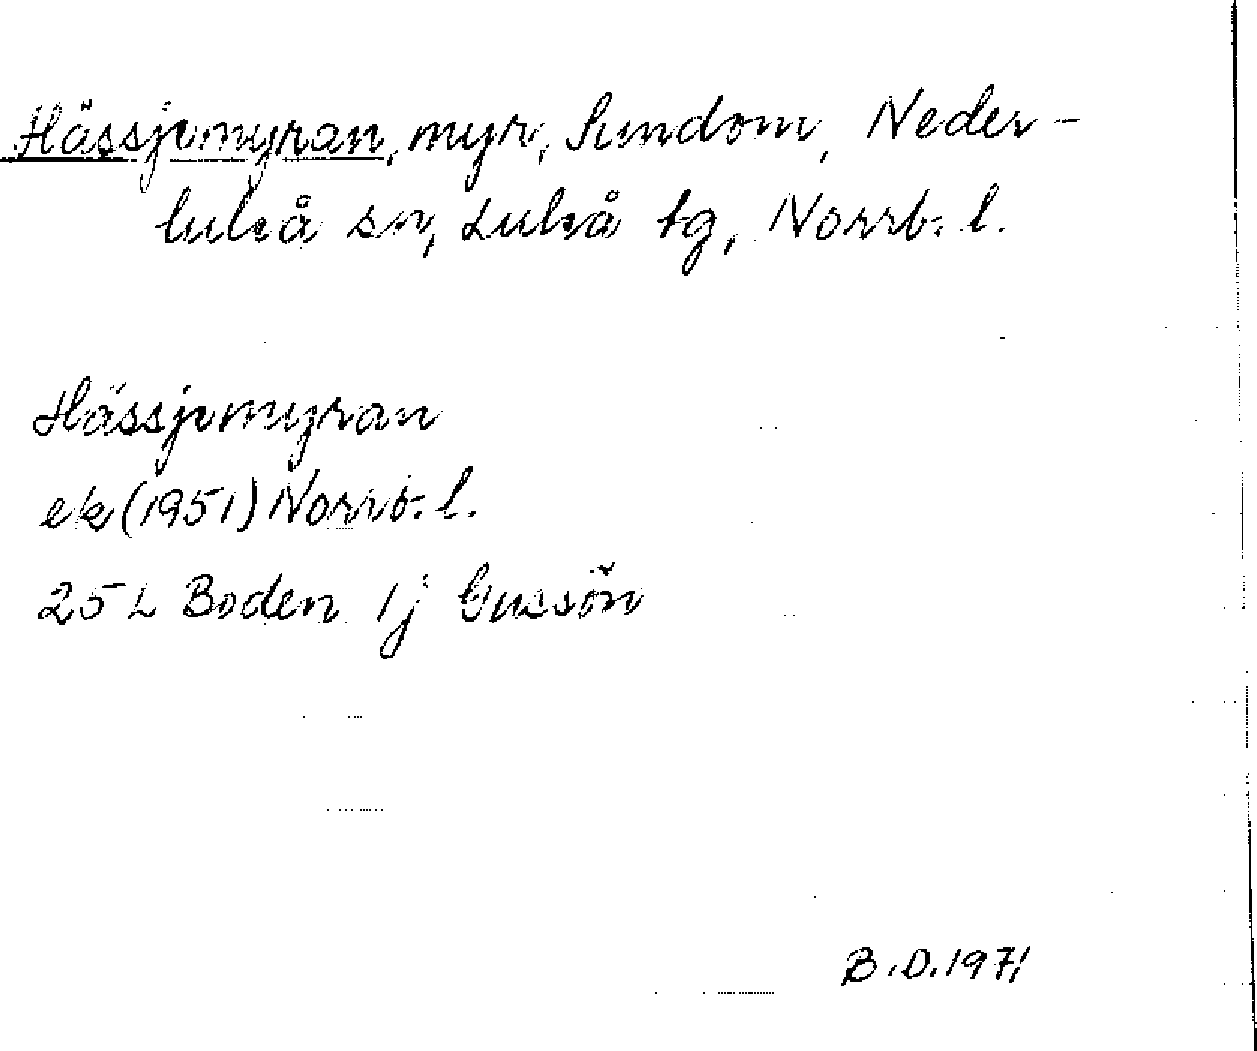 Hässjemyran, myr, Sundom, Neder-
luleå sn, Luleå tg, Norrb. l.
Hässjemyran
ek (1951) Norrb. l.
25 L Boden 1j Gussön
B.D. 1971